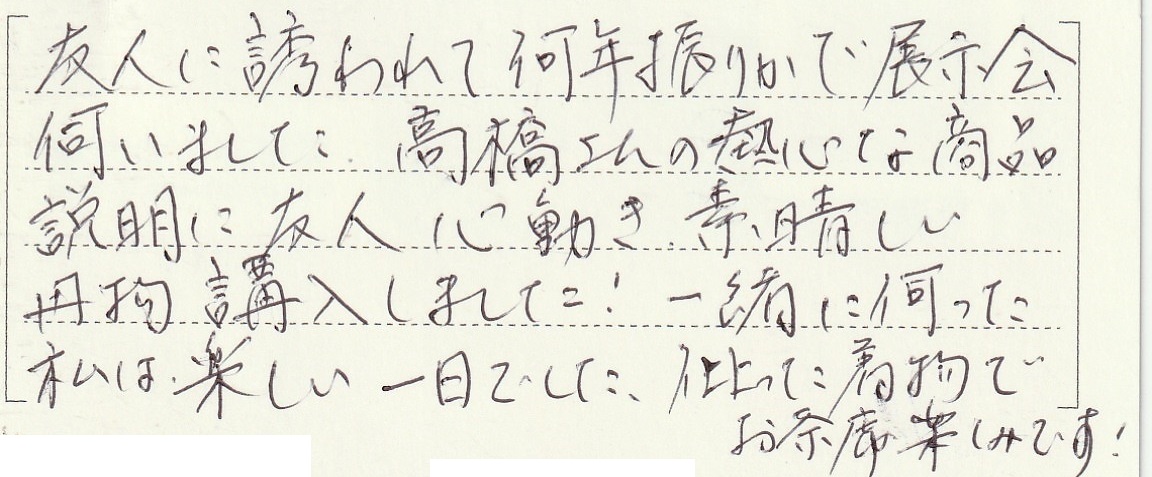 友人に誘われて何年振りかで展示会
伺いました。高橋さんの熱心な商品
説明に友人心動き、素晴しい
反物購入しました！一緒に伺った
私は、楽しい一日でした、仕上った着物で
お茶席楽しみです！